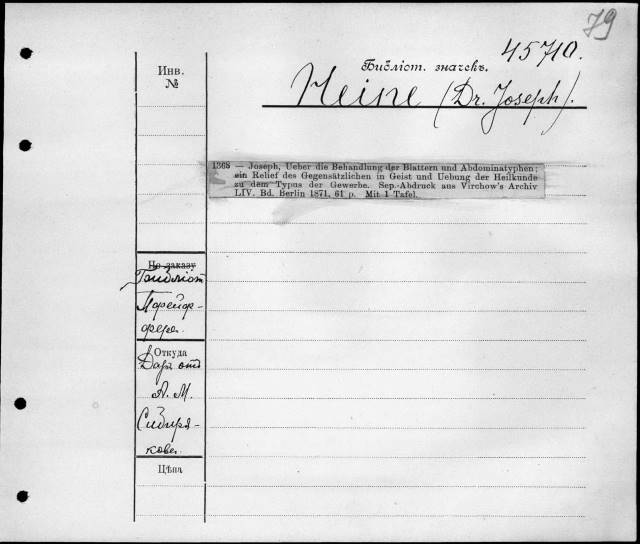 79
45710.
Библіот. значекъ.
Heine (Dr. Joseph).
Инв.
№
1368 — Joseph, Ueber die Behandlung der Blattern und Abdominatyphen;
ein Relief des Gegensätzlichen in Geist und Uebung der Heilkunde
zu dem Typus der Gewerbe. Sep.-Abdruck aus Virchow's Archiv
LIV. Bd. Berlin 1871, 61 p. Mit 1 Tafel.
По заказу
Библіот
Пфейф-
фера.
Откуда
Даръ отъ
А. М.
Сибиря-
кова.
Цѣна